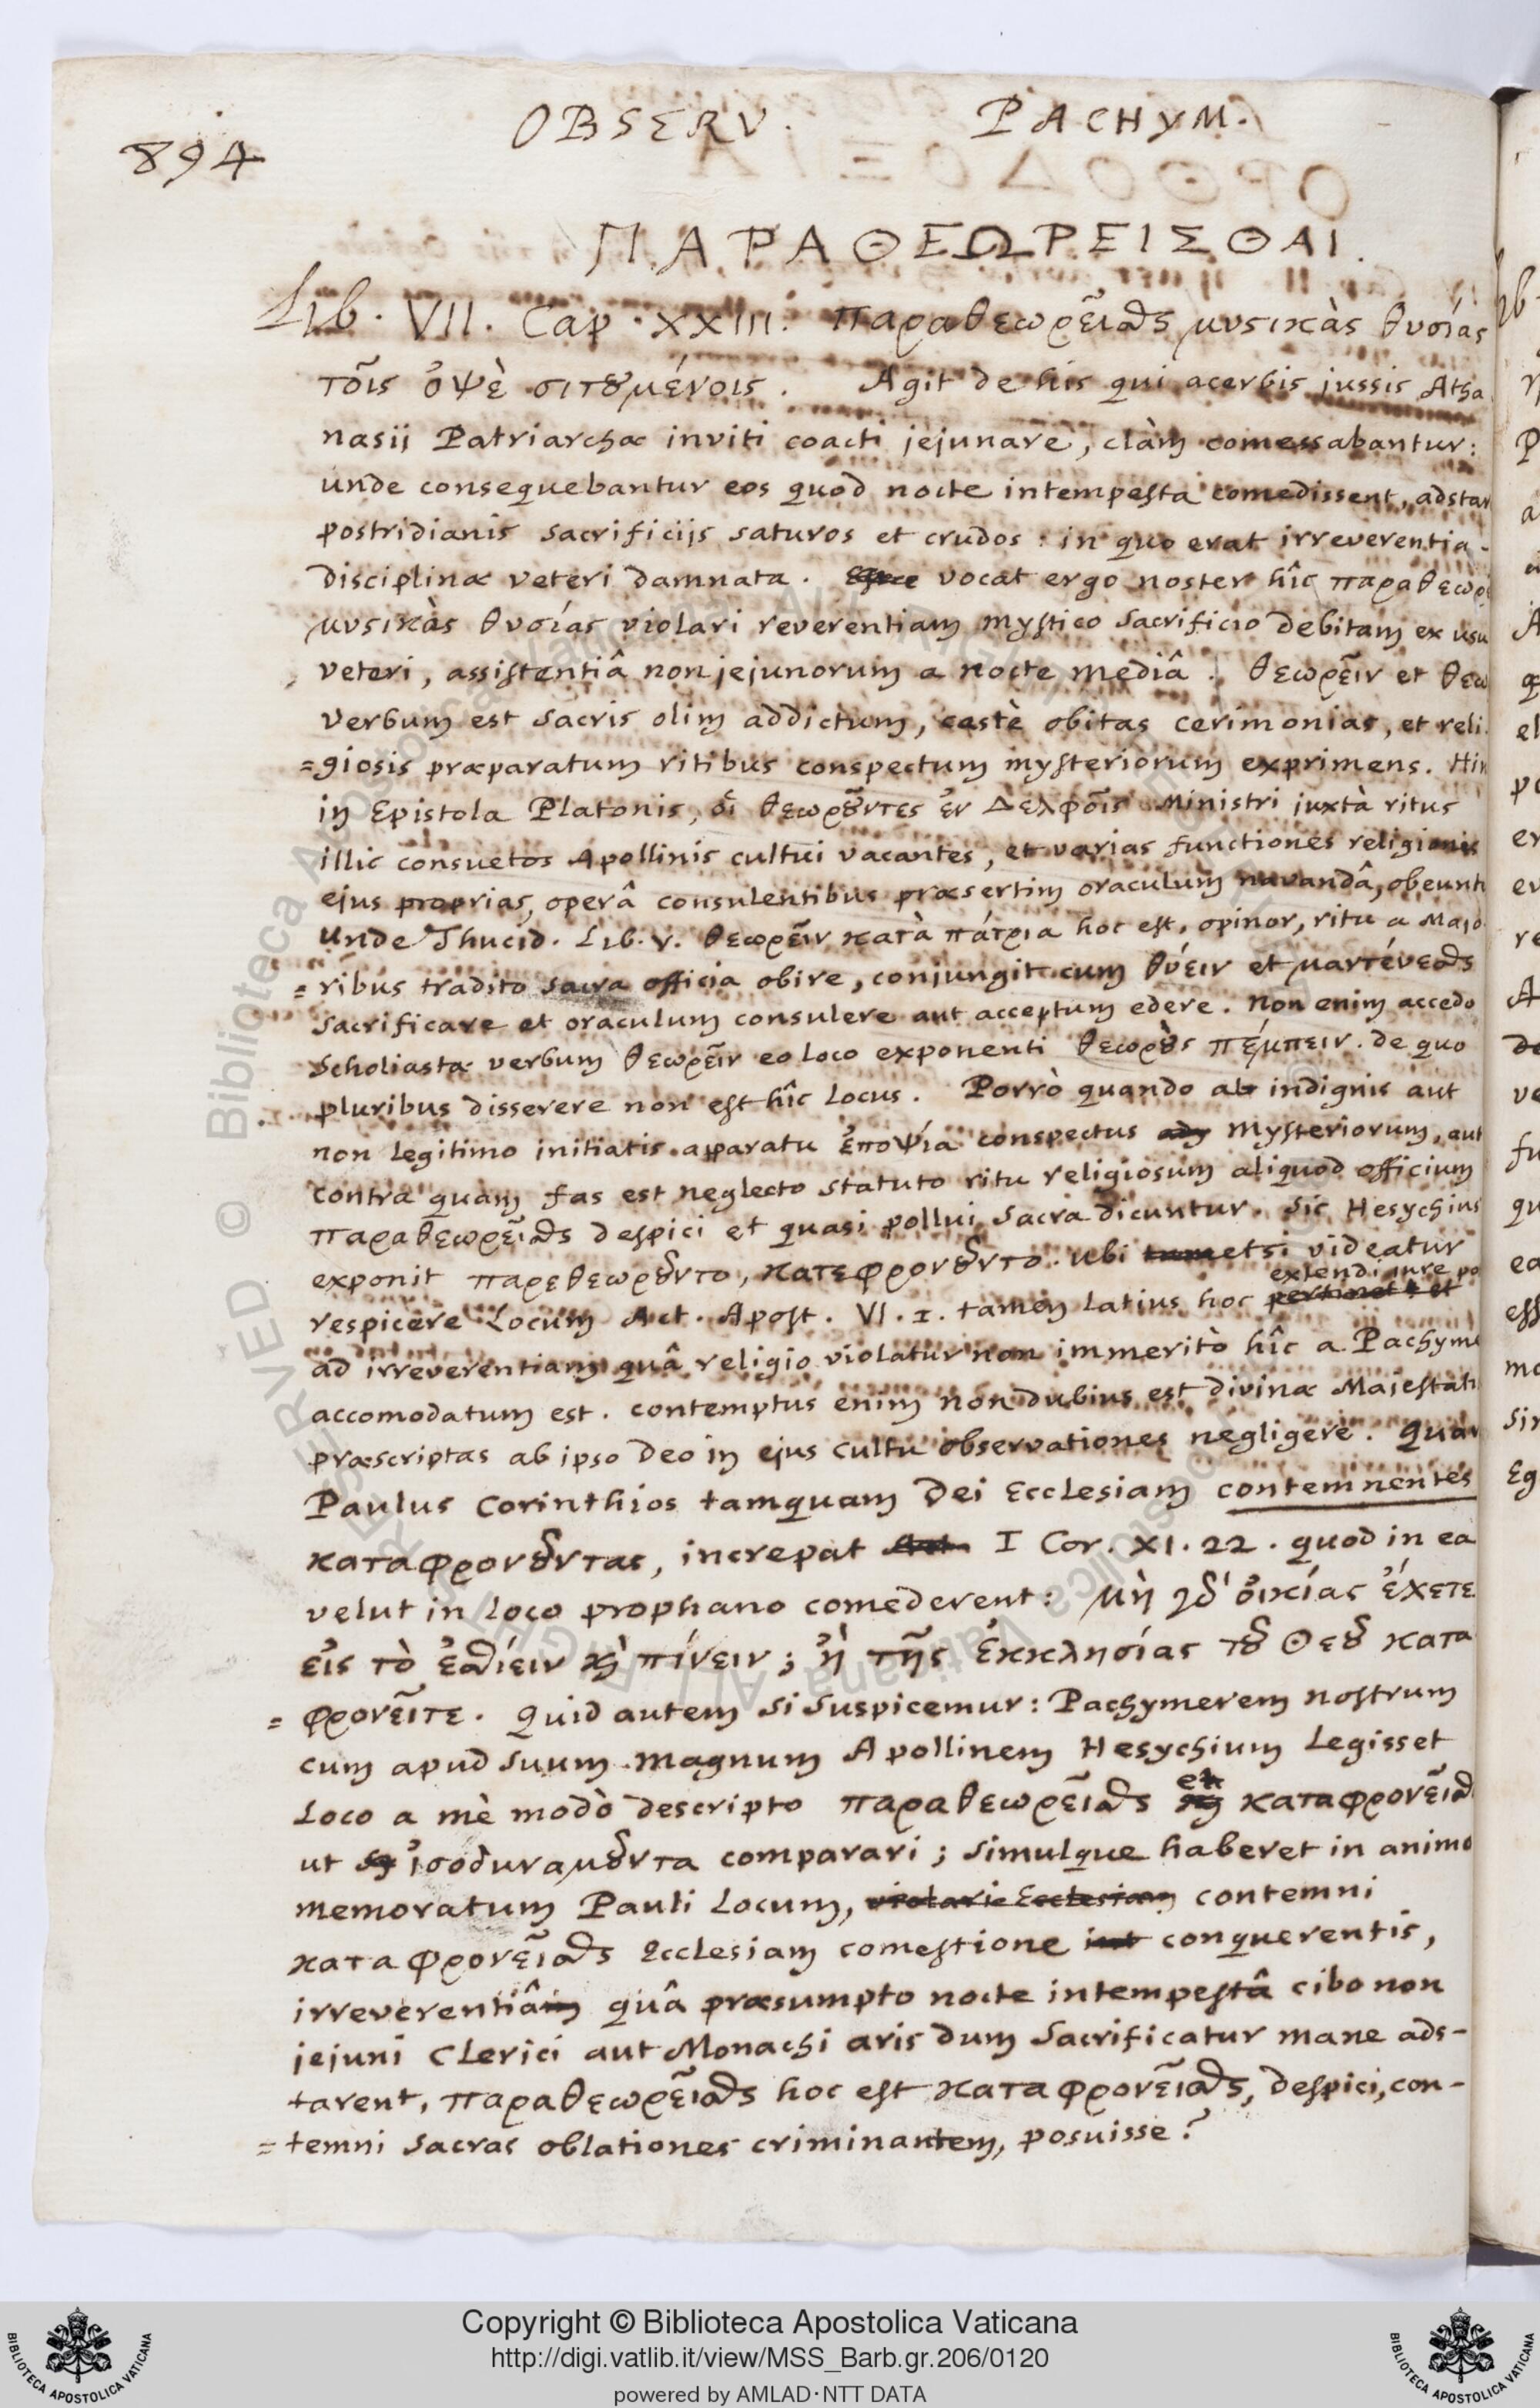 894
OBSERV. PACHYM.
ΠΑΡΑΘΕΩΡΕΙΣΘΑΙ.
Lib. VII. Cap. XXIII. παραθεωρεῖσθς μυστικὰς θυσίας
τοῖς ὀψὲ σιτουμένοις. Agit de his qui acerbis jussis Atha
nasij Patriarchæ inviti coacti jejunare, clàm comessabantur:
unde consequebantur eos quod nocte intempesta comedissent, adstar
postridianis sacrificijs saturos et crudos: in quo erat irreverentia
disciplinæ veteri damnata. vocat ergo noster hîc παραθεωρ
μυστικὰς θυσίας violari reverentiam mystico sacrificio debitam ex usu
veteri, assistentiâ non jejunorum a nocte mediâ. θεωρεῖν et θεω
verbum est sacris olim addictum, castè obitas cerimonias, et reli
=giosis præparatum ritibus conspectum mysteriorum exprimens. Hin
in Epistola Platonis, οἱ θεωροῦντες ἐν Δελφοῖς Ministri juxtà ritus
illic consuetos Apollinis cultui vacantes, et varias functiones religionis
ejus proprias, operâ consulentibus præsertim oraculum navandâ, obeunt
Unde Thucid. Lib. V. θεωρεῖν κατὰ πάτρια hoc est, opinor, ritu a Majo
=ribus tradito sacra officia obire, conjungit cum θύειν et μαντέυεσθς
sacrificare et oraculum consulere aut acceptum edere. Non enim accedo
Scholiastæ verbum θεωρεῖν eo loco exponenti θεωροὺς πέμπειν. de quo
pluribus disserere non est hîc locus. Porrò quando ab indignis aut
non legitimo initiatis apparatu ἐποψία conspectus mysteriorum, aut
contra quam fas est neglecto statuto ritu religiosum aliquod officium
παραθεωρεῖσθς despici et quasi pollui sacra dicuntur. Sic Hesychius
exponit παρεθεωροῦντο, κατεφρονοῦντο. Ubi tametsi videatur
extendi jure po
respicere Locum Act. Apost. VI. I. tamen latius hoc pertinet et
ad irreverentiam quâ religio violatur non immeritò hîc a Pachyme
accomodatum est. contemptus enim non dubius est divinæ Majestati
præscriptas ab ipso Deo in ejus cultu observationes negligere. Quar
Paulus Corinthios tamquam Dei Ecclesiam contemnentes
καταφρονοῦντας, increpat I Cor. XI. 22. quod in ea
velut in loco prophano comederent: Μὴ γδ' οἰκίας ἔχετε
εἰς τὸ ἐσθίειν ϗ πίνειν; ἢ τῆς ἐκκλησίας τοῦ Θεοῦ κατα
=φρονεῖτε. Quid autem si suspicemur: Pachymerem nostrum
cum apud suum magnum Apollinem Hesychium Legisset
Loco a mè modò descripto παραθεωρεῖσθς et καταφρονεῖσθ
ut ἰσοδυναμοῦντα comparari; simulque haberet in animo
memoratum Pauli Locum, violari Ecclesiam contemni
καταφρονεῖσθς Ecclesiam comestione conquerentis,
irreverentiâm quâ præsumpto nocte intempestâ cibo non
jejuni Clerici aut Monachi aris dum sacrificatur mane ads-
tarent, παραθεωρεῖσθς hoc est καταφρονεῖσθς, despici, con-
=temni sacras oblationes criminantem, posuisse?
Copyright © Biblioteca Apostolica Vaticana
http://digi.vatlib.it/view/MSS_Barb.gr.206/0120
powered by AMLAD·NTT DATA